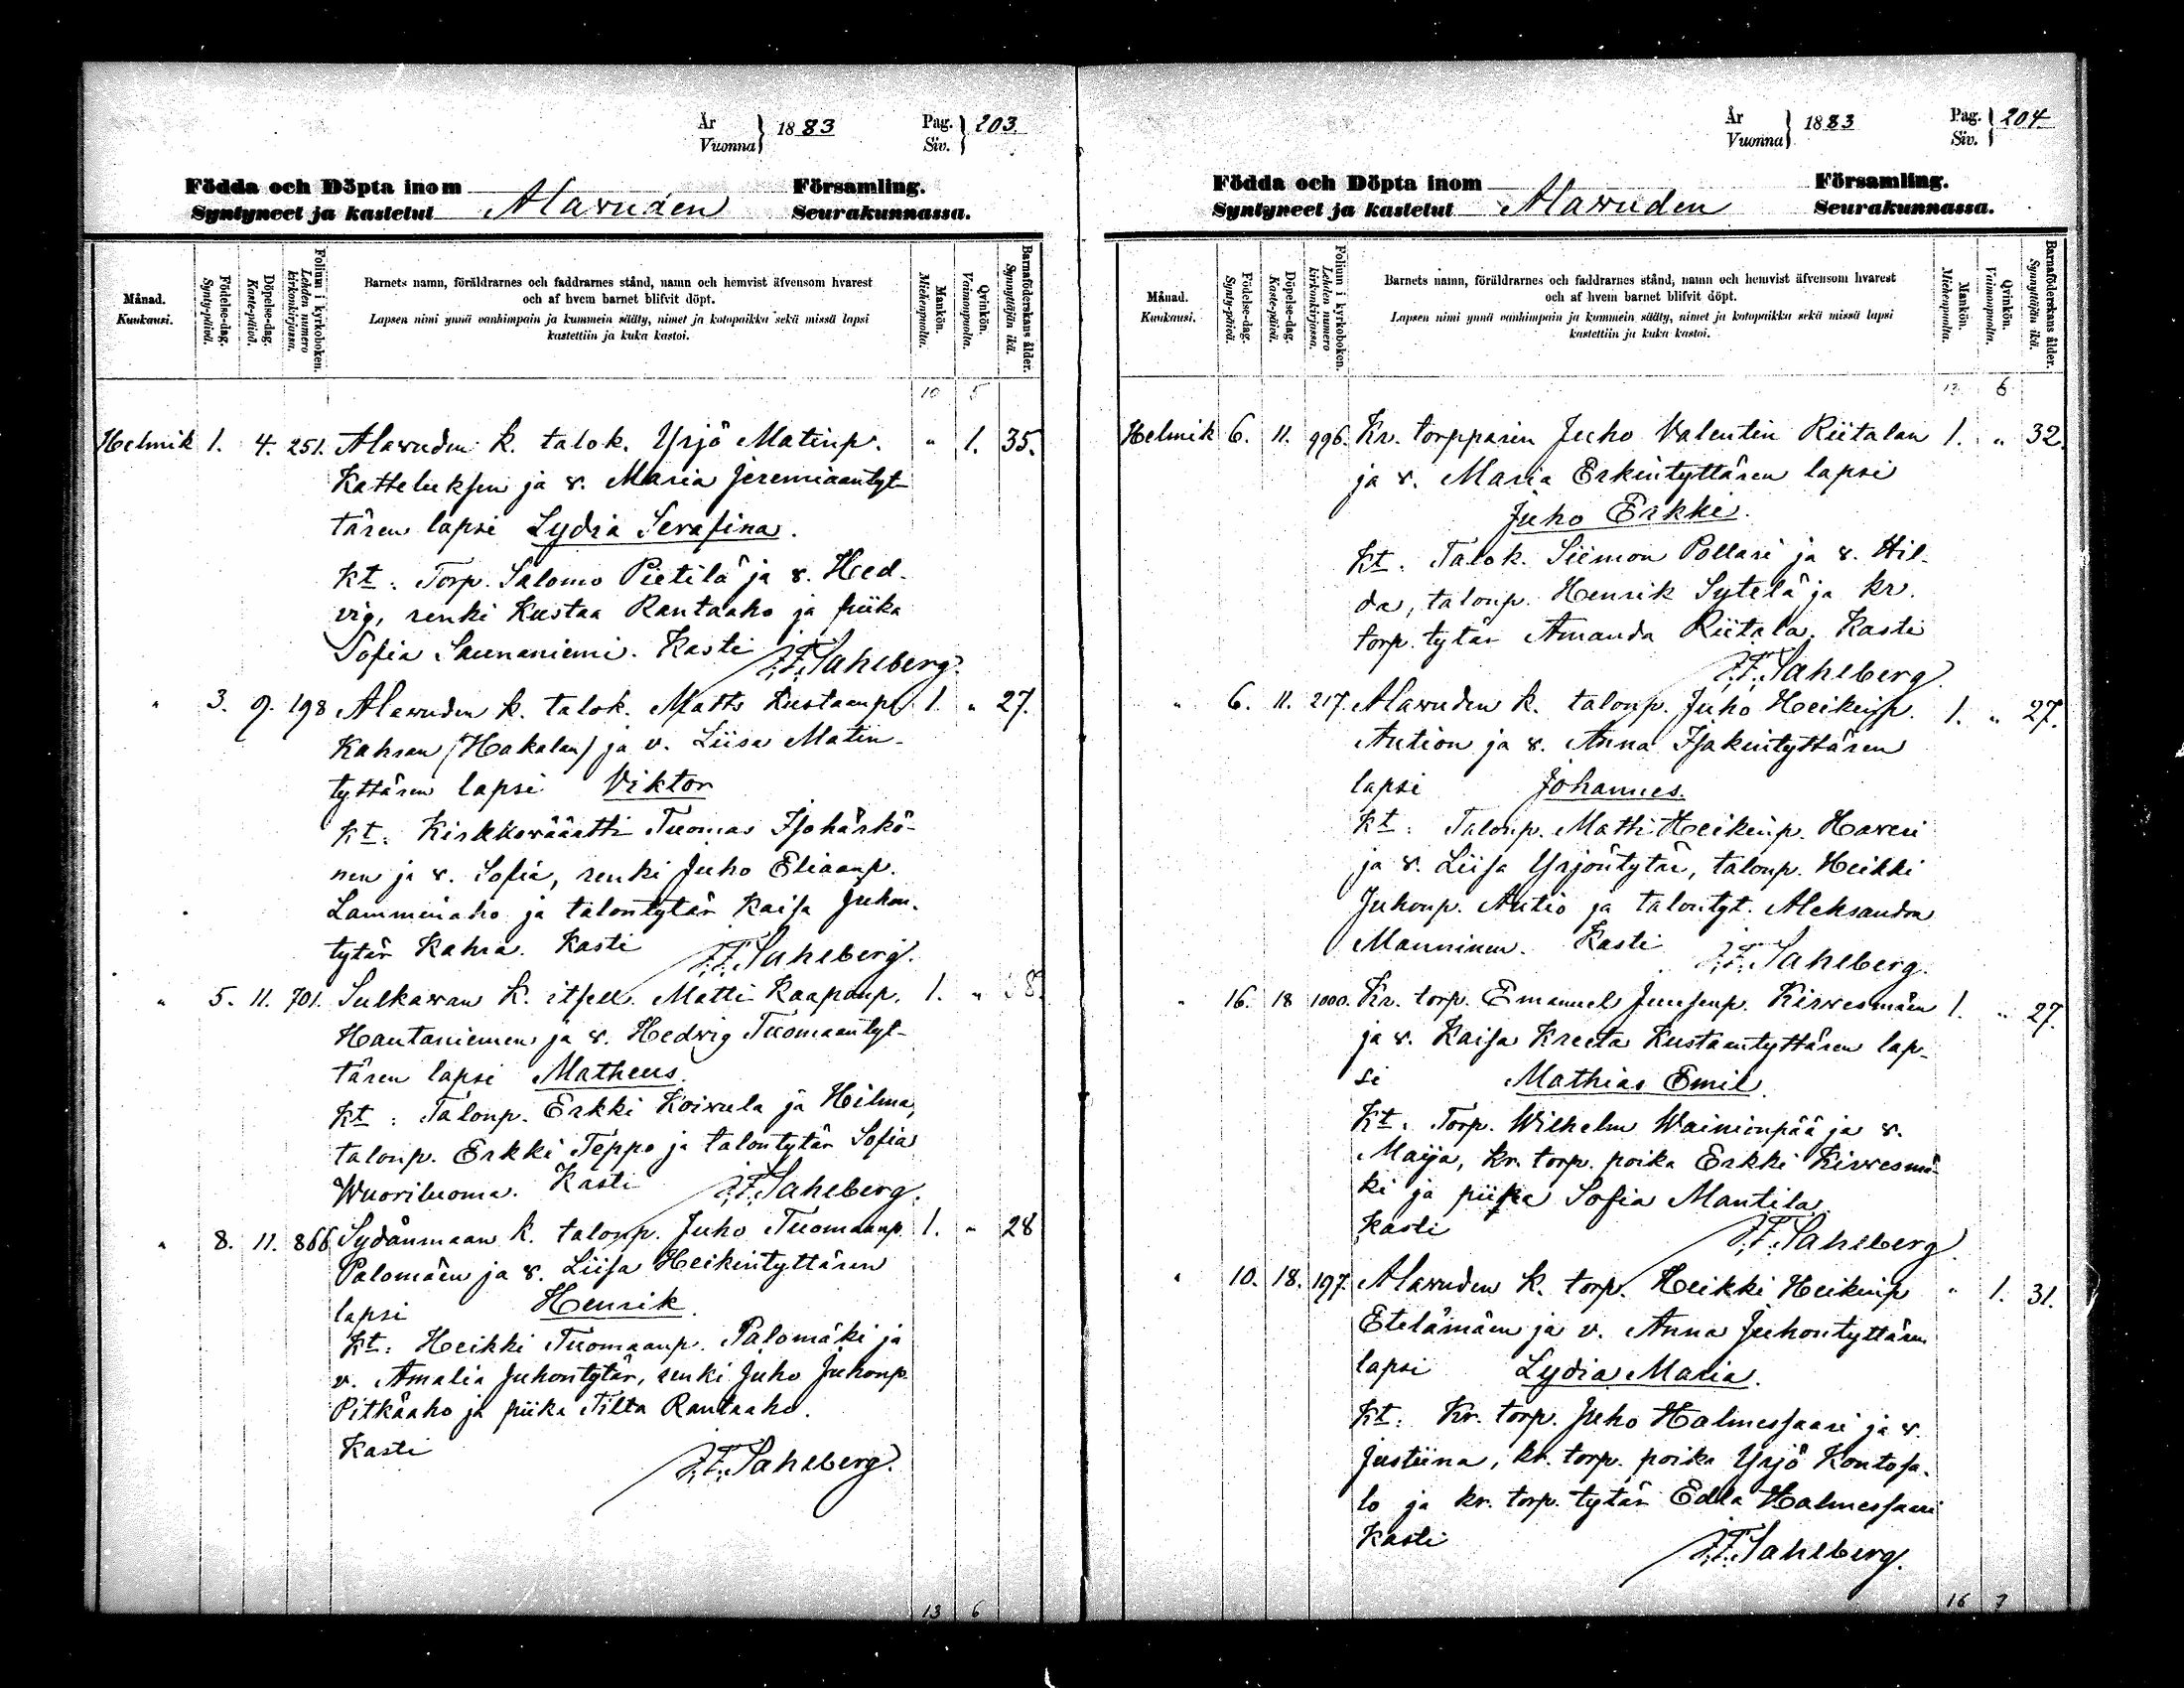 År Vuonna } 1883 Pag. Siv. } 203.
Födda och Döpta inom Församling.
Syntyneet ja kastetut Alavuden Seurakunnassa.
Månad. Kuukausi.
Födelse-dag. Synty-päivä.
Döpelse-dag. Kaste-päivä.
Folium i kyrkoboken. Lehden numero kirkonkirjassa.
Barnets namn, föräldrarnes och faddrarnes stånd, namn och hemvist äfvensom hvarest
och af hvem barnet blifvit döpt.
Lapsen nimi ynnä vanhimpain ja kummein sääty, nimet ja kotopaikka sekä missä lapsi
kastettiin ja kuka kastoi.
Mankön. Miehenpuolta.
Qvinkön. Vaimonpuolta.
Barnaföderskans ålder. Synnyttäjän ikä.
10 5
Helmik 1. 4. 251. Alavuden k. talok. Yrjö Matinp. " 1. 35.
Katteluksen ja v. Maria Jeremiaantyt-
tären lapsi Lydia Serafina.
Kt: Torp. Salomo Pietilä ja v. Hed-
vig, renki Kustaa Rantaaho ja piika
Sofia Saunaniemi. Kasti J.F. Sahlberg.
" 3. 9. 198 Alavuden k. talok. Matts Kustaanp. 1. " 27.
Kahran (Hakalan) ja v. Liisa Matin-
tyttären lapsi Viktor
Kt: Kirkkowäärtti Tuomas Isohärkö-
nen ja v. Sofia, renki Juho Eliaanp.
Lamminaho ja talontytär Kaisa Juhon-
tytär Kahra. Kasti J.F. Sahlberg.
" 5. 11. 701. Sulkavan k. itsell. Matti Kaaponp. 1. " 38.
Hautaniemen ja v. Hedvig Tuomaantyt-
tären lapsi Matheus.
Kt: Talonp. Erkki Koivula ja Hilma,
talonp. Erkki Teppo ja talontytär Sofia
Wuoriluoma. Kasti J.F. Sahlberg.
" 8. 11. 866 Sydänmaan k. talonp. Juho Tuomaanp. 1. " 28
Palomäen ja v. Liisa Heikintyttären
lapsi Henrik.
Kt: Heikki Tuomaanp. Palomäki ja
v. Amalia Juhontytär, renki Juho Juhonp.
Pitkäaho ja piika Tilta Rantaaho.
Kasti J.F. Sahlberg.
13 6
År Vuonna } 1883 Pag. Siv. } 204.
Födda och Döpta inom Församling.
Syntyneet ja kastetut Alavuden Seurakunnassa.
Månad. Kuukausi.
Födelse-dag. Synty-päivä.
Döpelse-dag. Kaste-päivä.
Folium i kyrkoboken. Lehden numero kirkonkirjassa.
Barnets namn, föräldrarnes och faddrarnes stånd, namn och hemvist äfvensom hvarest
och af hvem barnet blifvit döpt.
Lapsen nimi ynnä vanhimpain ja kummein sääty, nimet ja kotopaikka sekä missä lapsi
kastettiin ja kuka kastoi.
Mankön. Miehenpuolta.
Qvinkön. Vaimonpuolta.
Barnaföderskans ålder. Synnyttäjän ikä.
13 6
Helmik 6. 11. 996. Kr. torpparin Juho Valentin Riitalan 1. " 32.
ja v. Maria Erkintyttären lapsi
Juho Erkki.
Kt: Talok. Siimon Pollari ja v. Hil-
da, talonp. Henrik Sytelä ja kr.
torp. tytär Amanda Riitala. Kasti
J.F. Sahlberg.
" 6. 11. 217. Alavuden k. talonp. Juho Heikinp. 1. " 27.
Aution ja v. Anna Isakintyttären
lapsi Johannes.
Kt: Talonp. Matti Heikinp. Haveri
ja v. Liisa Yrjöntytär, talonp. Heikki
Juhonp. Autio ja talontyt. Aleksandra
Manninen. Kasti J.F. Sahlberg.
" 16. 18 1000. Kr. torp. Emanuel Juusenp. Kirvesmäen 1. " 27.
ja v. Kaisa Kreeta Kustaantyttären lap-
si Mathias Emil.
Kt: Torp. Wilhelm Wainionpää ja v.
Maija, kr. torp. poika Erkki Kirvesmä-
ki ja piika Sofia Mantila.
Kasti J.F. Sahlberg.
" 10. 18. 197. Alavuden k. torp. Heikki Heikinp " 1. 31.
Etelämäen ja v. Anna Juhontyttären
lapsi Lydia Maria.
Kt: Kr. torp. Juho Halmessaari ja v.
Justiina, kr. torp. poika Yrjö Kontosa-
lo ja kr. torp. tytär Edla Halmessaari
Kasti J.F. Sahlberg.
16 7